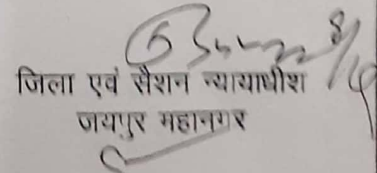 जिला एवं सैशन न्यायाधीश
जयपुर महानगर